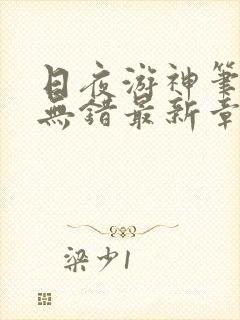 日夜游神筆
無錯最新章
梁少1